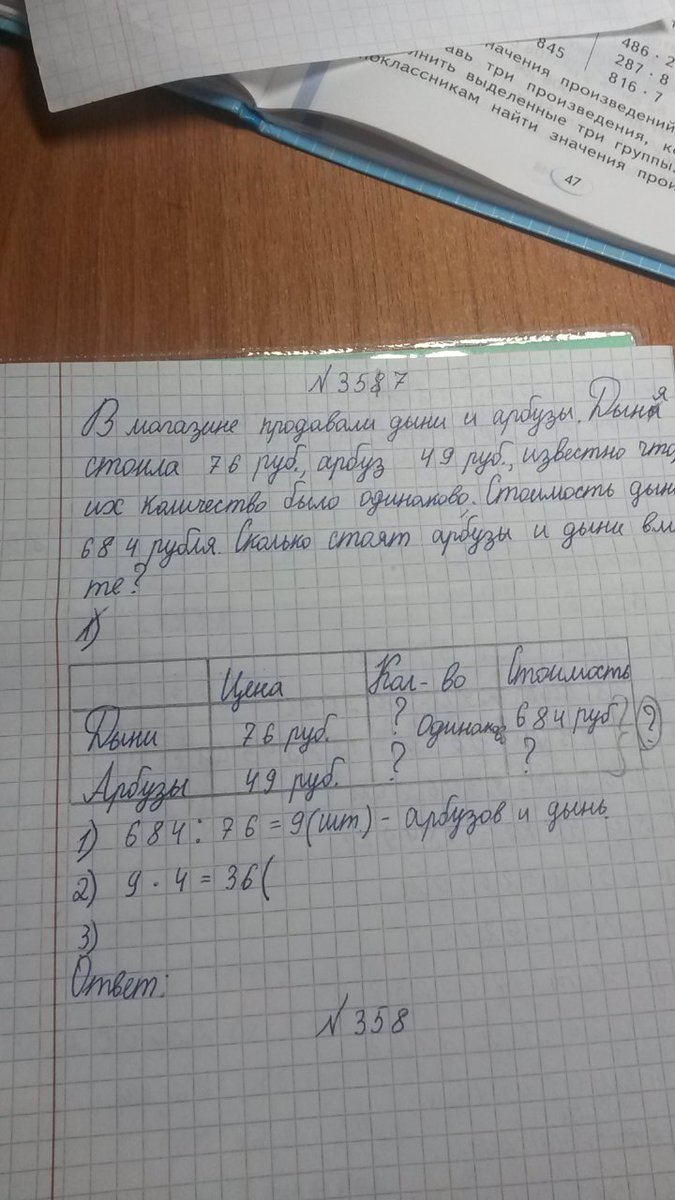 845
486 · 2
287 · 8
816 · 7
начения произведений
три произведения, к
лнить выделенные три группы.
оклассникам найти значения прои
47
№ 357
В магазине продавали дыни и арбузы. Дыня
стоила 76 руб., арбуз 49 руб., известно что,
их количество было одинаково. Стоимость дын
684 рубля. Сколько стоят арбузы и дыни вм
те?
1)
Цена Кол-во Стоимость
Дыни 76 руб. ? Одинаков 684 руб ?
Арбузы 49 руб. ? ?
1) 684 : 76 = 9 (шт.) - арбузов и дынь
2) 9 · 4 = 36 (
3)
Ответ:
№ 358